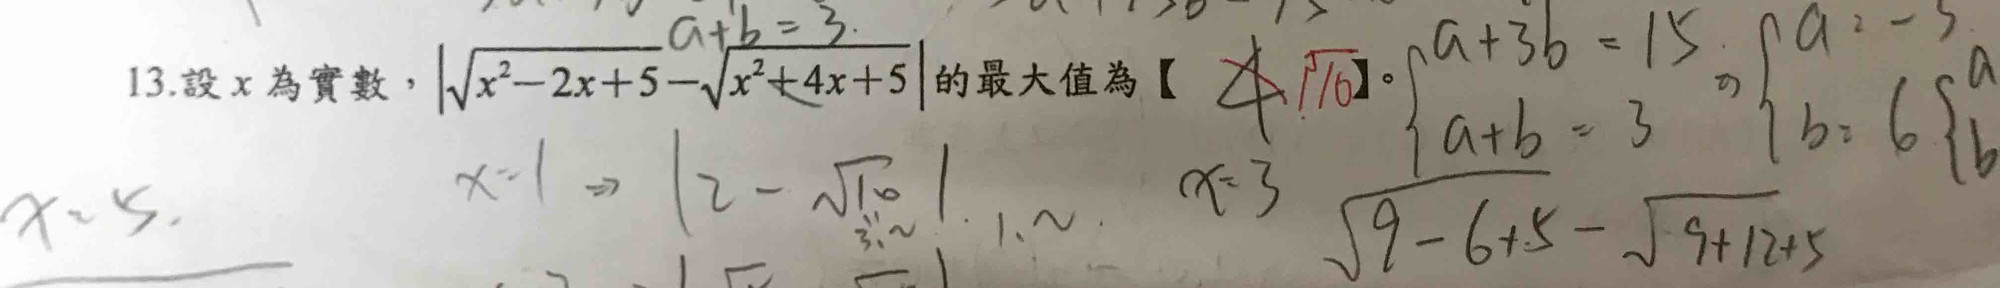 a+b=3.
13.設 x 為實數，|√(x²−2x+5)−√(x²+4x+5)|的最大值為【 4 √10】。
{a+3b=15 a+b=3 ⇒ {a=-3 b=6 {a b
x=1 ⇒ |2-√10| 1.~
3.~
x=3
√9-6+5 - √9+12+5
x=5.